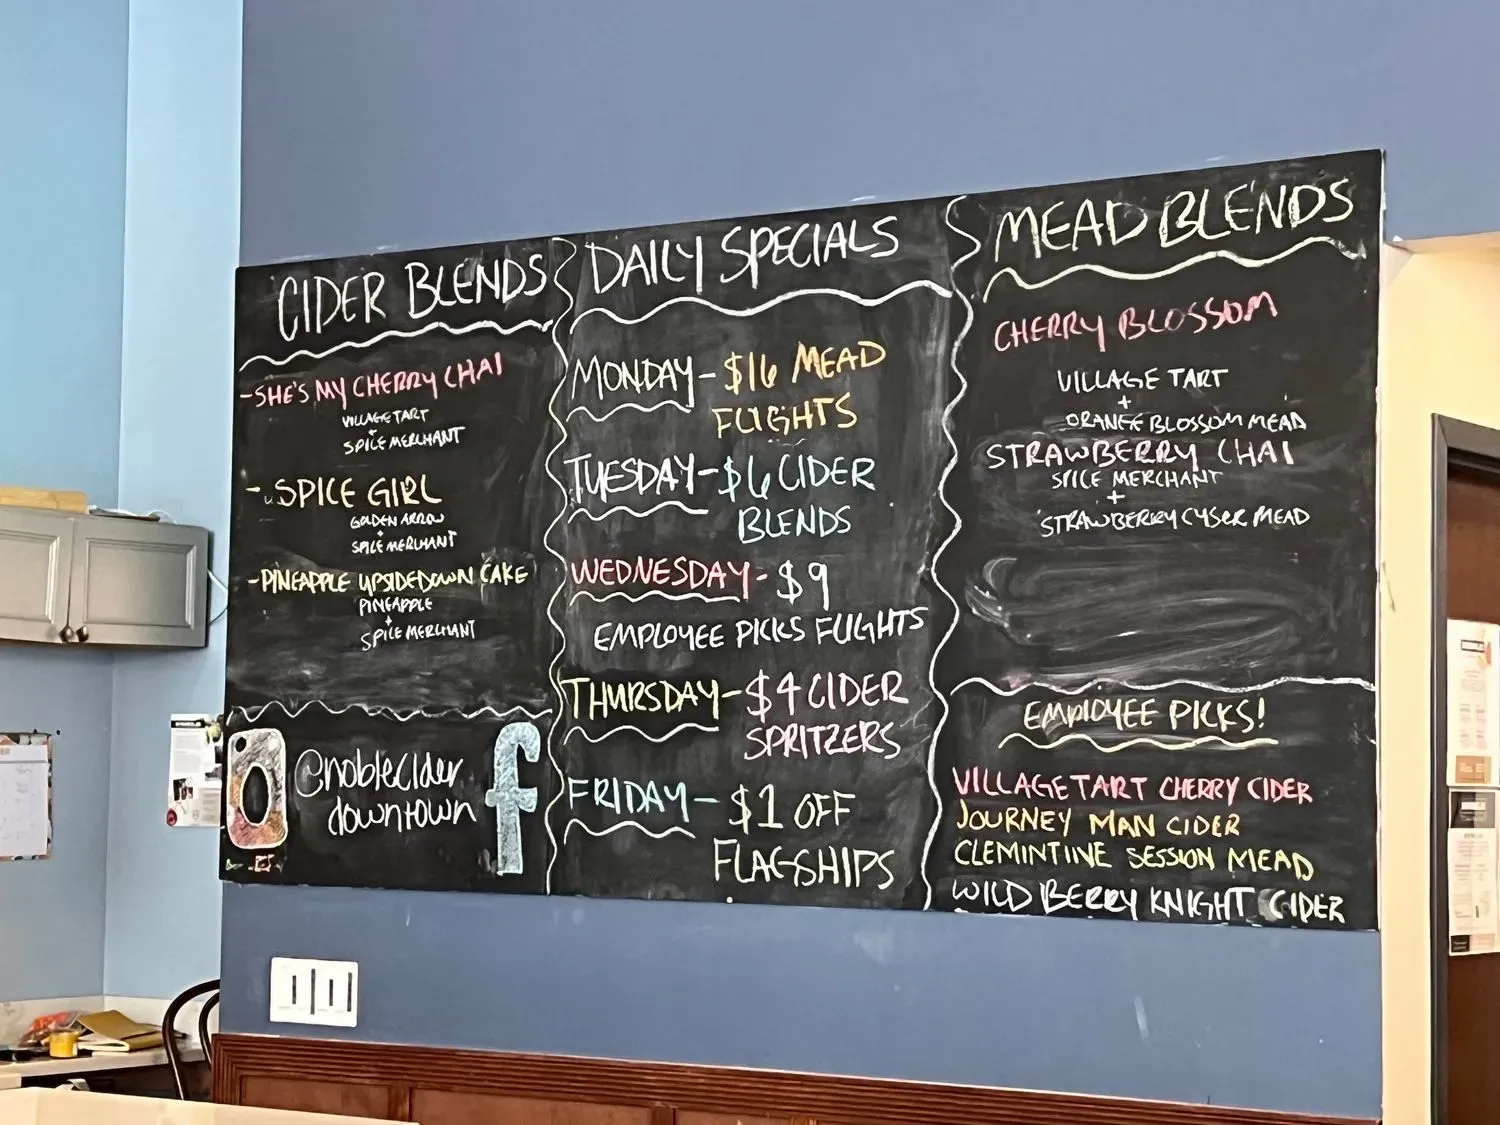 CIDER BLENDS
-SHE'S MY CHERRY CHAI
VILLAGE TART
+
SPICE MERCHANT
- SPICE GIRL
GOLDEN ARROW
+
SPICE MERCHANT
-PINEAPPLE UPSIDEDOWN CAKE
PINEAPPLE
+
SPICE MERCHANT
@noblecider
downtown
f
DAILY SPECIALS
MONDAY - $16 MEAD
FLIGHTS
TUESDAY - $6 CIDER
BLENDS
WEDNESDAY - $9
EMPLOYEE PICKS FLIGHTS
THURSDAY - $4 CIDER
SPRITZERS
FRIDAY - $1 OFF
FLAGSHIPS
MEAD BLENDS
CHERRY BLOSSOM
VILLAGE TART
+
ORANGE BLOSSOM MEAD
STRAWBERRY CHAI
SPICE MERCHANT
+
STRAWBERRY CYSER MEAD
EMPLOYEE PICKS!
VILLAGE TART CHERRY CIDER
JOURNEY MAN CIDER
CLEMINTINE SESSION MEAD
WILD BERRY KNIGHT CIDER